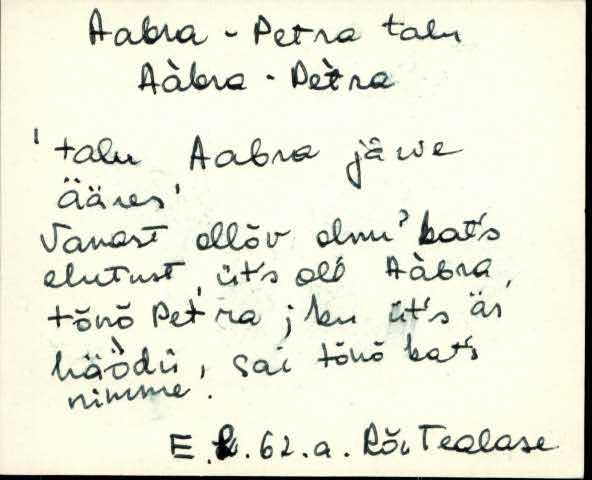 Aabra - Petra talu
Aàbra - Petra
'talu Aabra järve
ääres'
Vanast ollõv olnu? kat's
elutust, üt's oll' Aàbra,
tõnõ Petra; ku üt's är
häödü, sai tõnõ kat's
nimme.
E. 62.a. Rõi Tealase